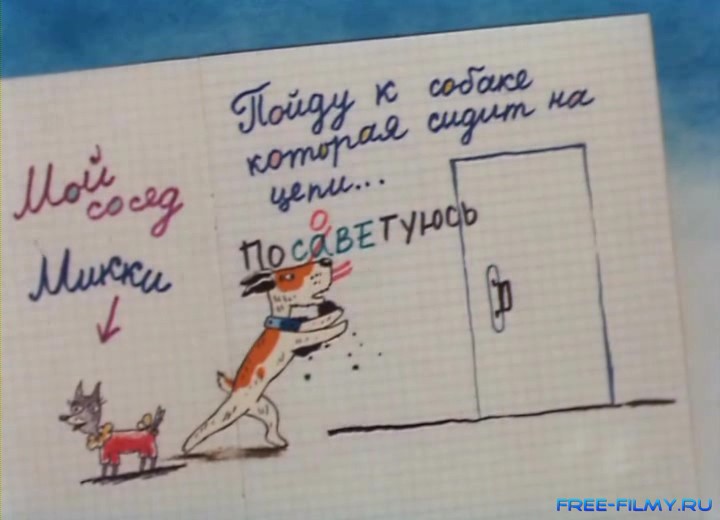 Мой
сосед
Микки
Пойду к собаке
которая сидит на
цепи...
о
посаветуюсь
FREE-FILMY.RU